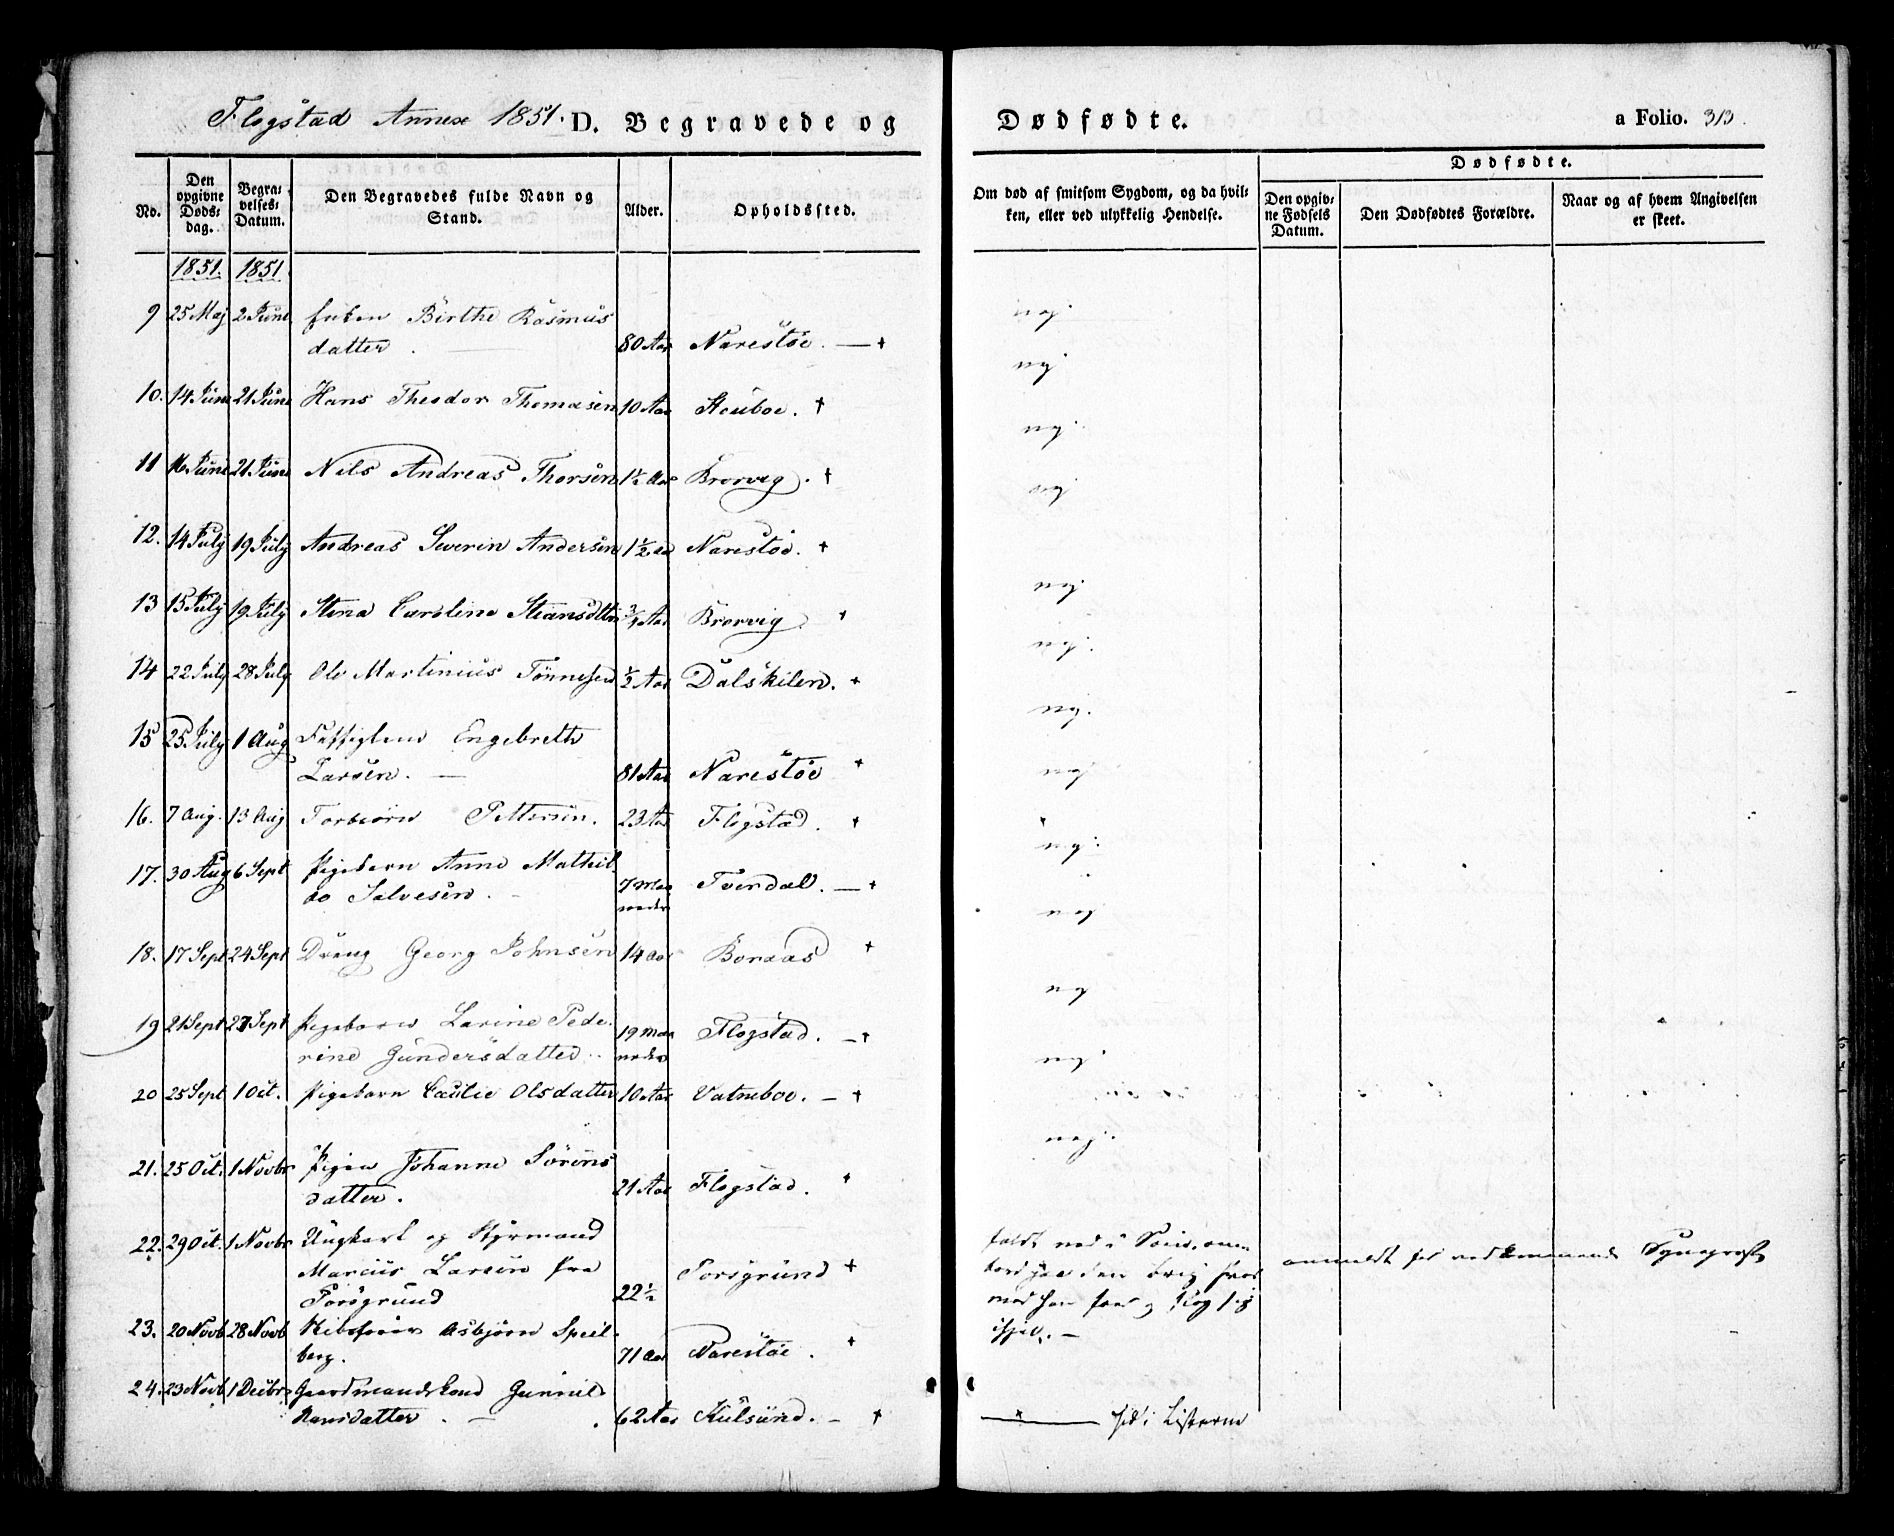 Flogstad Annex 1851. D. Begravede og Dødfødte. a Folio. 313.
No. Den opgivne Døds-dag. Begra-velses-Datum. Den Begravedes fulde Navn og Stand. Alder. Opholdssted. Om død af smitsom Sygdom, og da hvil-ken, eller ved ulykkelig Hendelse. Dødfødte. Den opgiv-ne Fødsels Datum. Den Dødfødtes Forældre. Naar og af hvem Angivelsen er skeet.
1851. 1851
9 25 Maj 2 Juni Birthe Rasmus
datter. 80 Aar Narestöe. — + nej.
10. 14 Juni 21 Juni Hans Theodor Thomasen 10 Aar Stuboe. † nej.
11 16 Juni 21 Juni Nils Andreas Thorsen 1½ Aar Brorvig. † nej.
12. 14 July 19 July Andreas Severin Andersen 1½ Narestöe. + nej
13 15 July 19 July Stina Caroline 3/4 Aar Brorvig. + nej.
14 22 July 28 July Ole Martinius Tönnesen ½ Aar Dalskilen. + nej.
15 25 July 1 Aug Engebreth
Larsen. — 81 Aar Narestöe + nej.
16. 7 Aug. 13 Aug Torbiörn Pettersen. 23 Aar Flogstad. + nej
17. 30 Aug 6 Sept Pigebarn Anne Mathil
de Salvesen. 7 Maa
neder Tverdal. — + nej.
18. 17 Sept 24 Sept Dreng Georg Johnsen 14 Aar Boraas + nej
19 21 Sept 27 Sept Pigebarn Larine Pede-
rine Gundersdatter. 19 Maa
neder Flogstad. — + nej
20 25 Sept 1 Oct. Pigebarn Olsdatter 10 Aar Vatneboe. — + nej.
21. 25 Oct. 1 Novbr Pigen Johanne Sörens
datter. 21 Aar Flogstad. + nej.
22. 29 Oct. 1 Novbr Ungkarl og Styrmand
Marcus Larsen fra
Porsgrund 22½ Porsgrund + faldt ned i
med han og slog sig
ihjel. — anmeldt for vedkommende
23. 20 Novb 28 Novb Asbjörn Speil-
berg. 71 Aar Narestöe. +
24. 23 Novb 1 Decbr Gaardmandskone Gunnild
Hansdatter. — 62 Aar Kulsund. — † — + — i Listerne